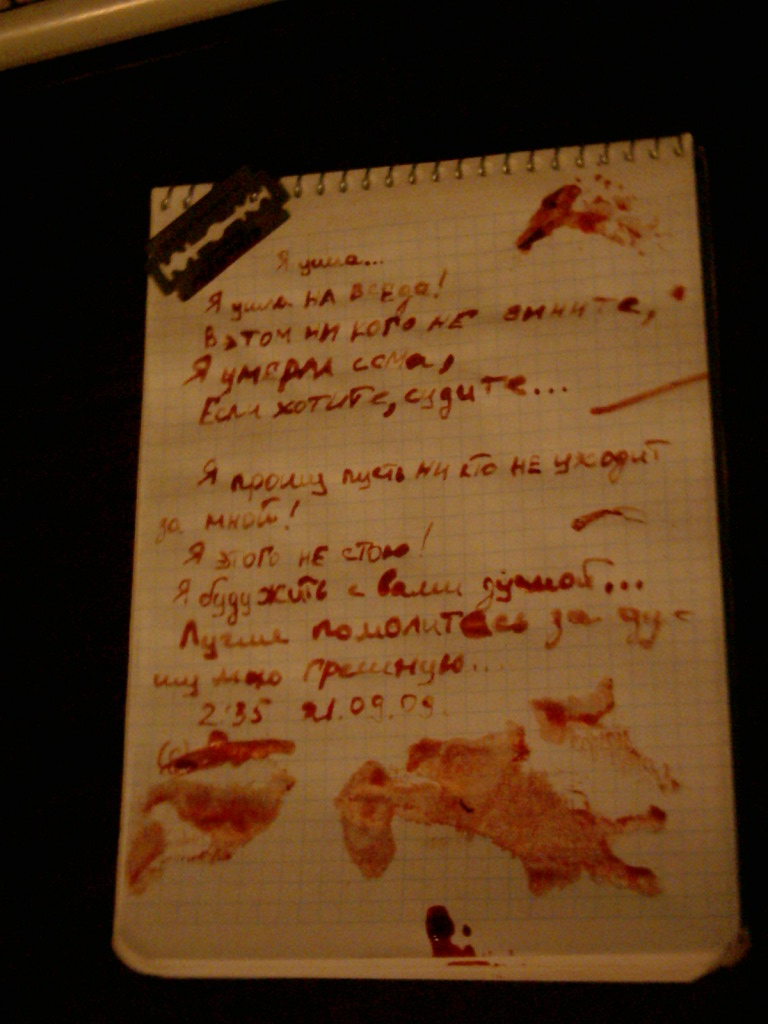 Я ушла...
Я ушла НА ВСЕГДА!
В этом ни кого не вините,
Я умерла сама,
Если хотите, судите...
Я прошу пусть ни кто не уходит
за мной!
Я этого не стою!
Я буду жить с вами душой...
Лучше помолитесь за ду-
шу мою грешную...
2:35 21.09.09.
(c)